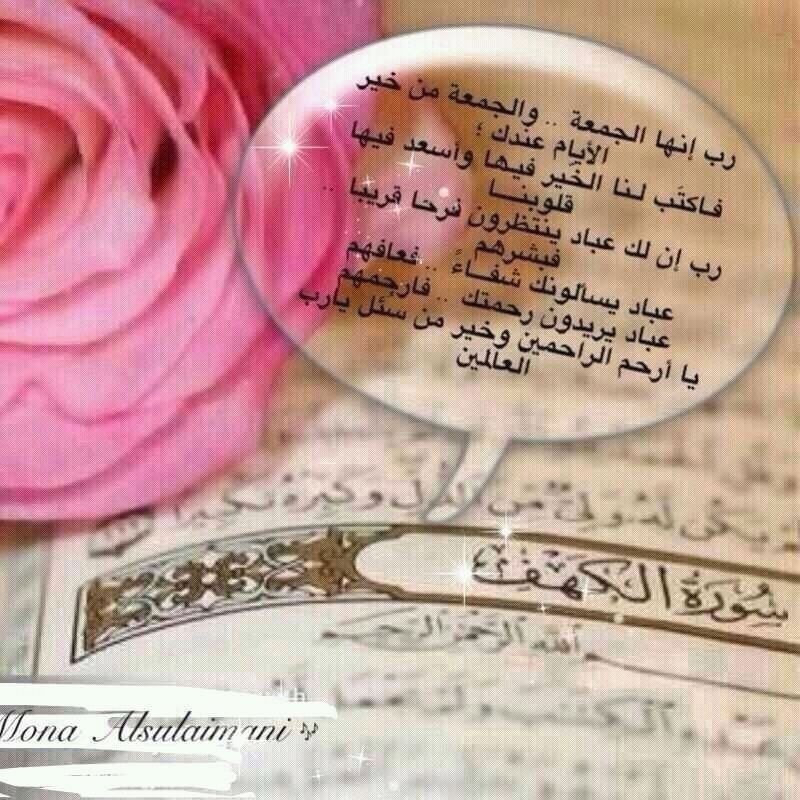 رب إنها الجمعة .. والجمعة من خير
الأيام عندك ؛
فاكتَب لنا الخَير فيها وأسعد فيها
قلوبنـا
رب إن لك عباد ينتظرون فرحا قريبا ..
فبشرهم
عباد يسألونك شفـاءً .. فعافهم
عباد يريدون رحمتك .. فارحمهم
يا أرحم الراحمين وخير من سئل يارب
العالمين
لَّهُۥ وَلِىٌّ مِّنَ ٱلذُّلِّ وَكَبِّرْهُ تَكْبِيرًا
سُورَةُ الكَهْفِ
ٱللَّهِ ٱلرَّحْمَٰنِ ٱلرَّحِيمِ
Mona Alsulaimani 🎶